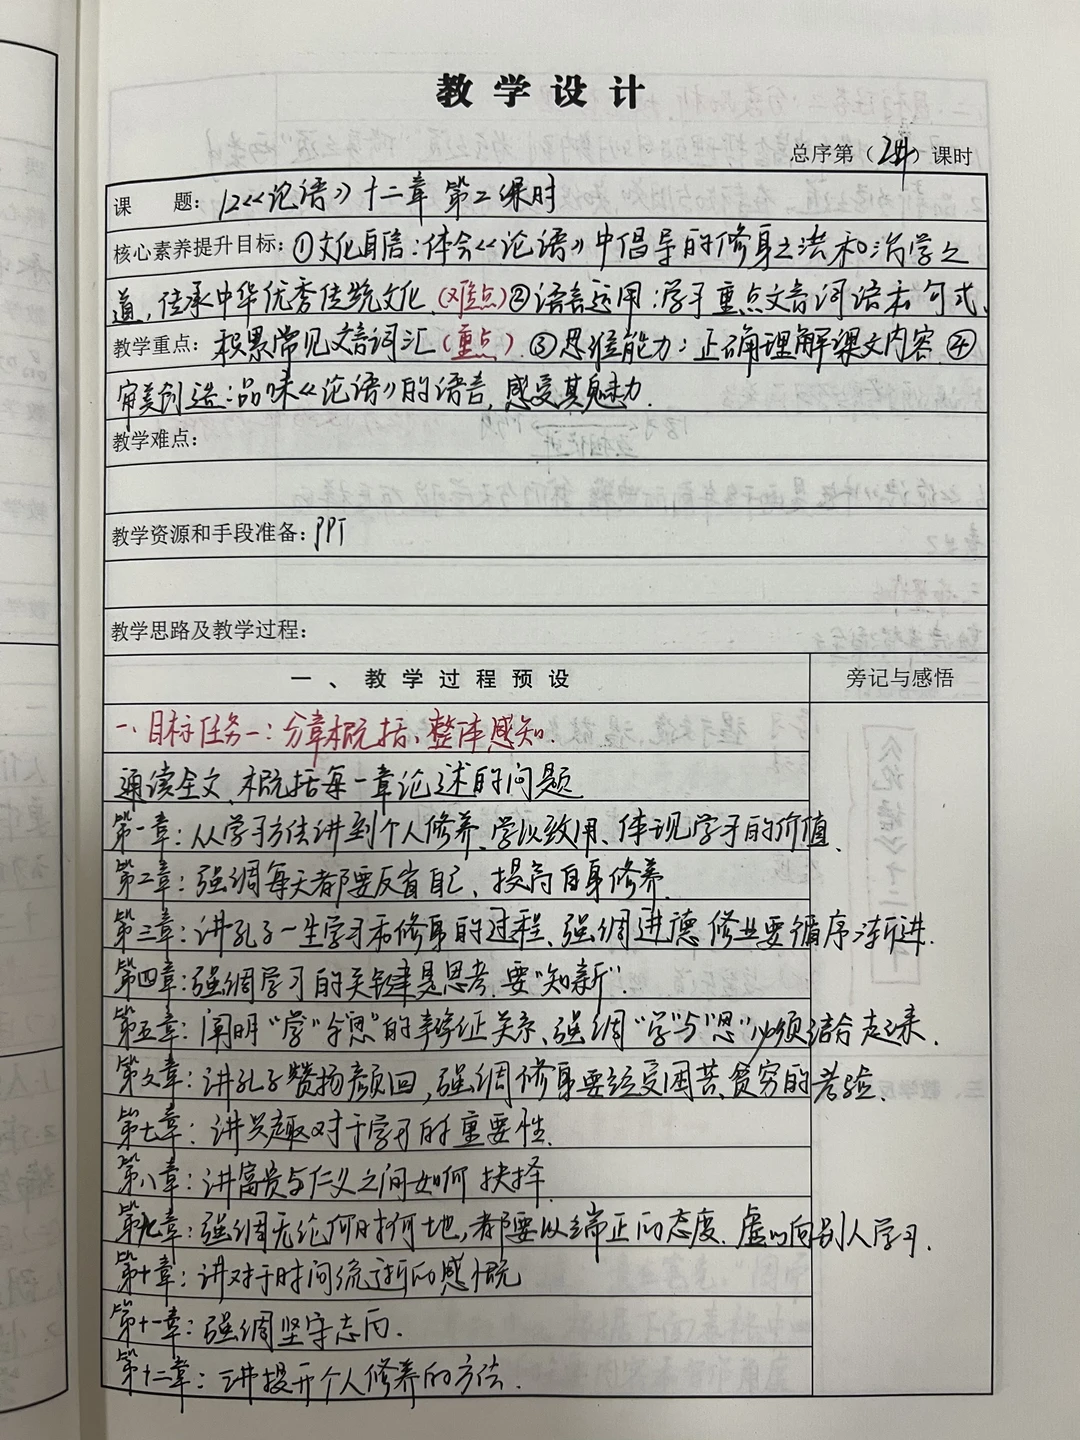 教学设计
总序第（2讲）课时
课 题：12《论语》十二章 第二课时
核心素养提升目标：①文化自信：体会《论语》中倡导的修身之法和治学之
道，传承中华优秀传统文化.(难点)②语言运用：学习重点文言词语和句式、
教学重点：积累常见文言词汇(重点).③思维能力：正确理解课文内容.④
审美创造：品味《论语》的语言，感受其魅力.
教学难点：
教学资源和手段准备：PPT
教学思路及教学过程：
一、教学过程预设
旁记与感悟
一.目标任务一：分章概括，整体感知.
通读全文、概括每一章论述的问题
第一章：从学习方法讲到个人修养、学以致用、体现学习的价值.
第二章：强调每天都要反省自己、提高自身修养.
第三章：讲孔子一生学习和修身的过程、强调进德修业要循序渐进.
第四章：强调学习的关键是思考.要"知新".
第五章：阐明"学"与"思"的辩证关系、强调"学"与"思"必须结合起来.
第六章：讲孔子赞扬颜回，强调修身要经受困苦、贫穷的考验.
第七章：讲兴趣对于学习的重要性.
第八章：讲富贵与仁义之间如何抉择.
第九章：强调无论何时何地，都要以端正的态度.虚心向别人学习.
第十章：讲对于时间流逝的感慨
第十一章：强调坚守志向.
第十二章：讲提升个人修养的方法.